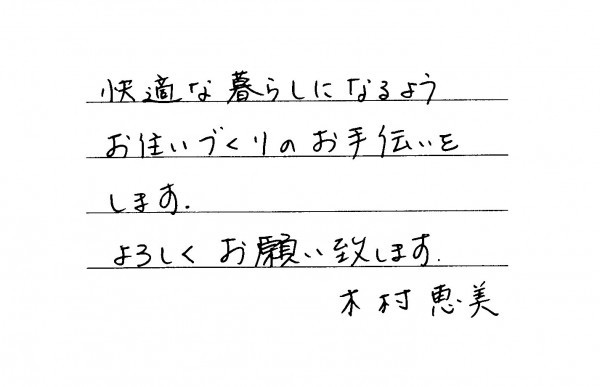 快適な暮らしになるよう
お住いづくりのお手伝いを
します.
よろしくお願い致します.
木村恵美